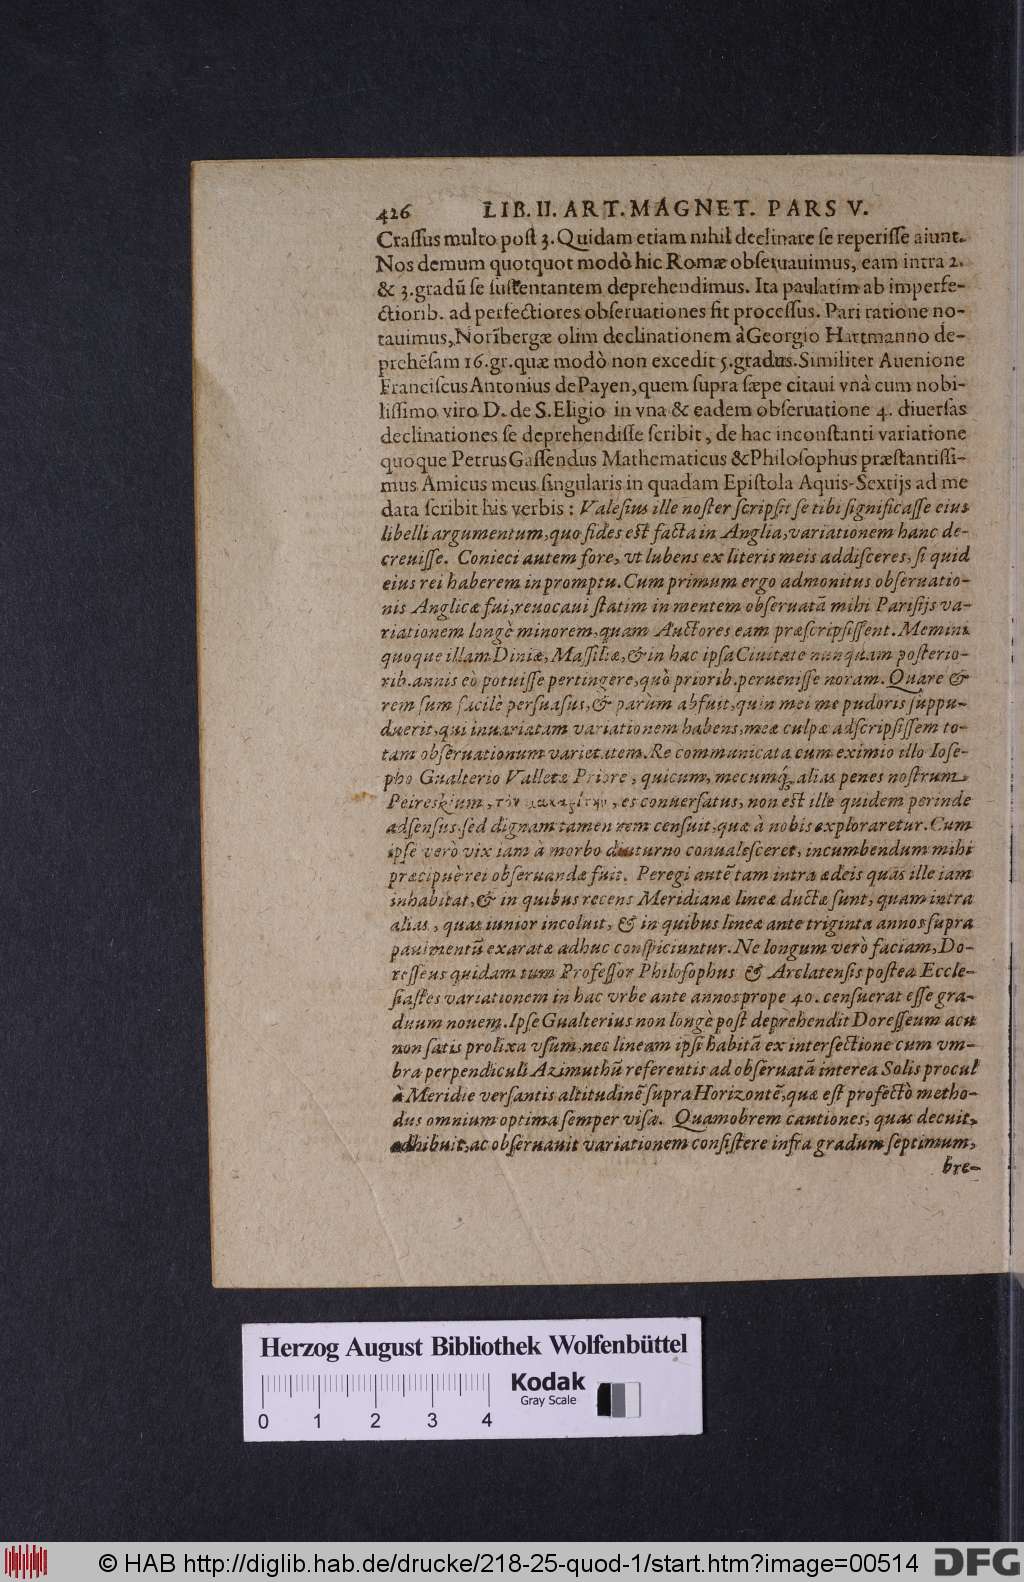 426 LIB. II. ART. MAGNET. PARS V.
Crassus multo post 3. Quidam etiam nihil declinare se reperisse aiunt.
Nos demum quotquot modò hic Romæ obseruauimus, eam intra 2.
& 3. gradũ se sustentantem deprehendimus. Ita paulatim ab imperfe-
ctiorib. ad perfectiores obseruationes fit processus. Pari ratione no-
tauimus, Norĩbergæ olim declinationem à Georgio Hartmanno de-
prehẽsam 16. gr. quæ modò non excedit 5. gradus. Similiter Auenione
Franciscus Antonius de Payen, quem supra sæpe citaui vnà cum nobi-
lissimo viro D. de S. Eligio in vna & eadem obseruatione 4. diuersas
declinationes se deprehendisse scribit, de hac inconstanti variatione
quoque Petrus Gassendus Mathematicus & Philosophus præstantissi-
mus Amicus meus singularis in quadam Epistola Aquis-Sextijs ad me
data scribit his verbis : Valesius ille noster scripsit se tibi significasse eius
libelli argumentum, quo fides est facta in Anglia, variationem hanc de-
creuisse. Conieci autem fore, vt lubens ex literis meis addisceres, si quid
eius rei haberem in promptu. Cum primum ergo admonitus obseruatio-
nis Anglicæ fui, reuocaui statim in mentem obseruatã mihi Parisijs va-
riationem longè minorem, quam Auctores eam præscripsissent. Memini
quoque illam Diniæ, Massiliæ, & in hac ipsa Ciuitate nunquam posterio-
rib. annis eò potuisse pertingere, quò priorib. peruenisse noram. Quare &
rem sum facilè persuasus, & parùm abfuit, quin mei me pudoris suppu-
duerit, qui inuariatam variationem habens, meæ culpæ adscripsissem to-
tam obseruationum varietatem. Re communicata cum eximio illo Iose-
pho Gualterio Valletæ Priore, quicum, mecumq́, alias penes nostrum
Peireskium, τὸν μακαρίτην, es conuersatus, non est ille quidem perinde
adsensus, sed dignam tamen rem censuit, quæ à nobis exploraretur. Cum
ipse verò vix iam à morbo diuturno conualesceret, incumbendum mihi
præcipuè rei obseruandæ fuit. Peregi autẽ tam intra ædeis quas ille iam
inhabitat, & in quibus recens Meridianæ lineæ ductæ sunt, quam intra
alias, quas iunior incoluit, & in quibus lineæ ante triginta annos supra
pauimentũ exaratæ adhuc conspiciuntur. Ne longum verò faciam, Do-
resseus quidam tum Professor Philosophus & Arelatensis postea Eccle-
siastes variationem in hac vrbe ante annos prope 40. censuerat esse gra-
duum nouem. Ipse Gualterius non longè post deprehendit Doresseum acu
non satis prolixa vsum, nec lineam ipsi habitã ex intersectione cum vm-
bra perpendiculi Azimuthũ referentis ad obseruatã interea Solis procul
à Meridie versantis altitudinẽ supra Horizontẽ, quæ est profectò metho-
dus omnium optima semper visa. Quamobrem cautiones, quas decuit,
adhibuit, ac obseruauit variationem consistere infra gradum septimum,
bre-
Herzog August Bibliothek Wolfenbüttel
Kodak
Gray Scale
0 1 2 3 4
© HAB http://diglib.hab.de/drucke/218-25-quod-1/start.htm?image=00514
DFG